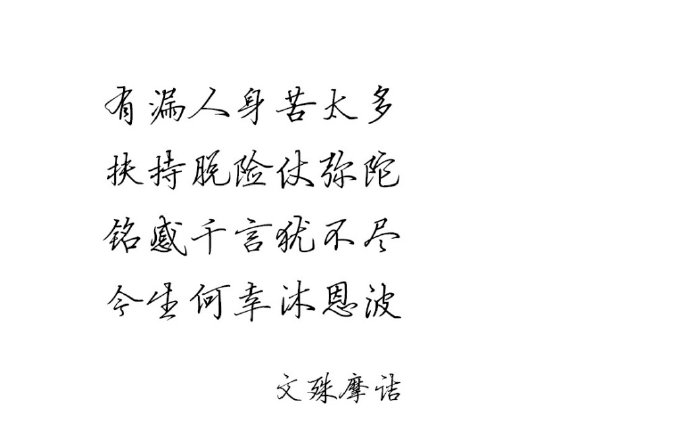 有漏人身苦太多
扶持脱险仗弥陀
铭感千言犹不尽
今生何幸沐恩波
文殊摩诘